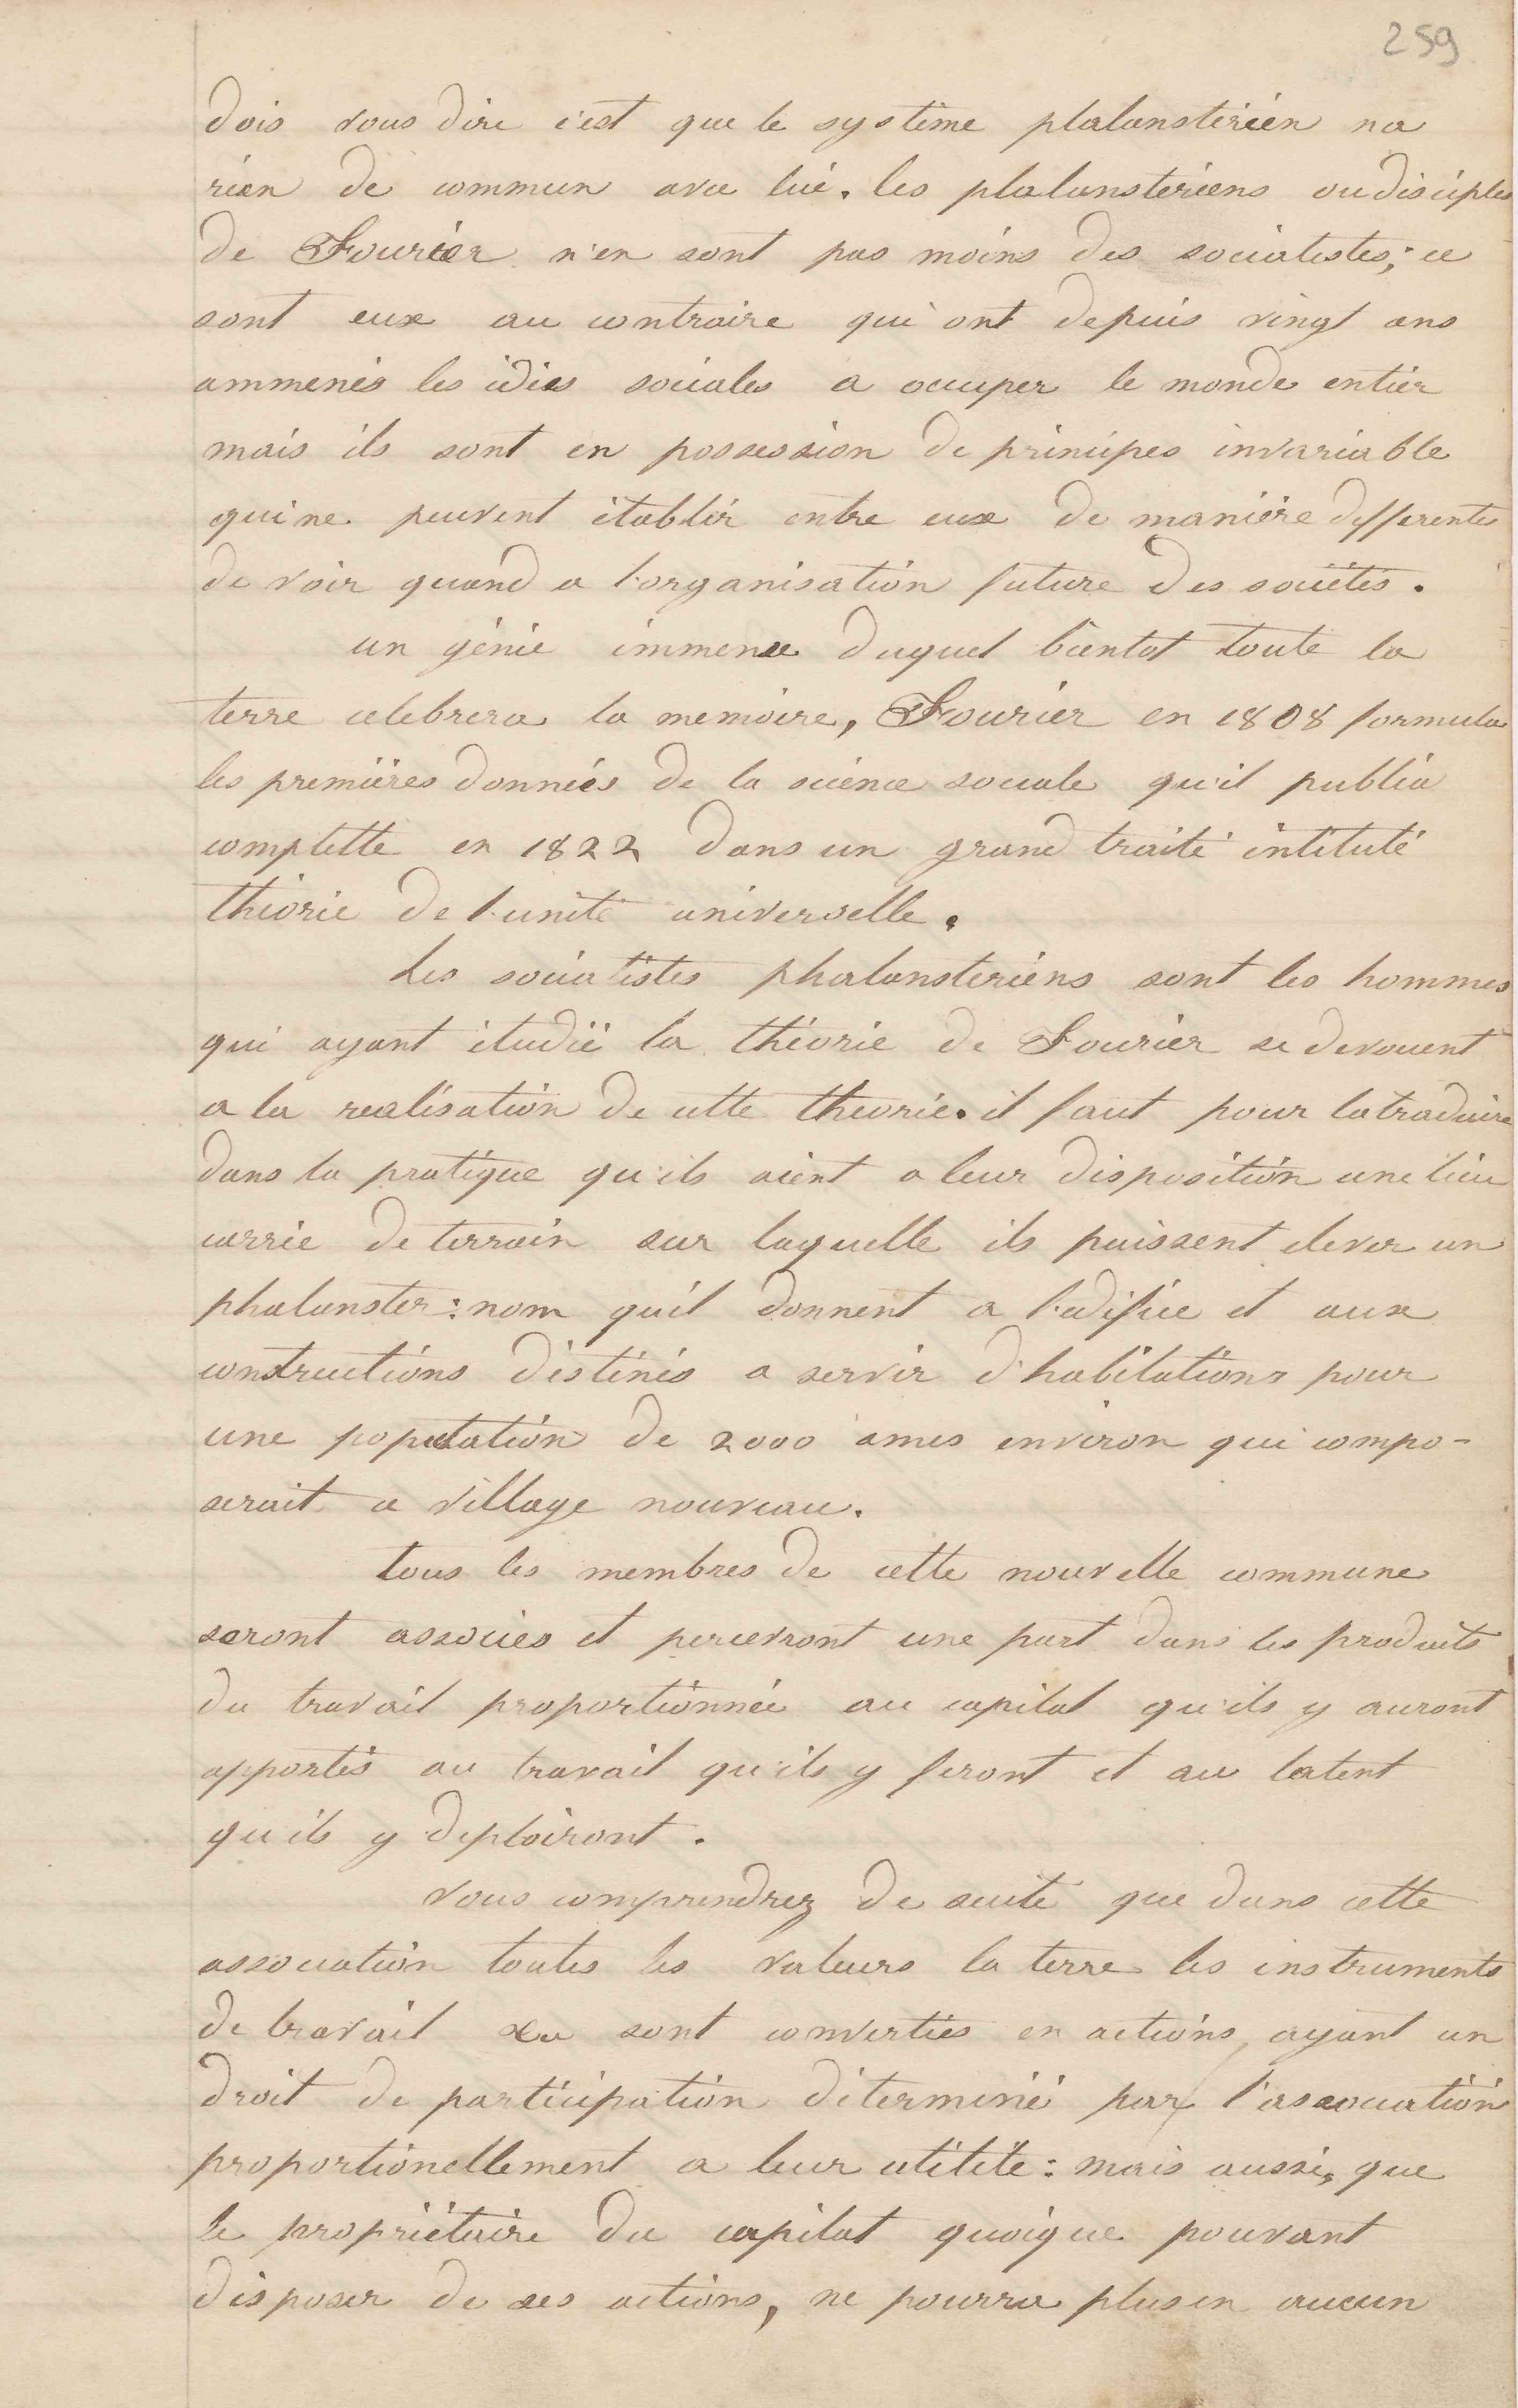 259
dois vous dire c'est que le système phalanstèrien na
rien de commun avec lui. les phalansteriens ou disciples
de Fourier n'en sont pas moins des socialistes; ce
sont eux au contraire qui ont depuis vingt ans
ammenés les idées sociales a occuper le monde entier
mais ils sont en possession de principes invariable
qui ne peuvent établir entre eux de manière differentes
de voir quand a l'organisation future des sociétés.
un génie immense duquel bientot toute la
terre celebrera la memoire, Fourier en 1808 formula
les premières données de la science sociale qu'il publia
complette en 1822 dans un grand traité intitulé
théorie de l'unité universelle.
Les socialistes phalansteriens sont les hommes
qui ayant étudié la théorie de Fourier se devouent
a la realisation de cette theorie. il faut pour la traduire
dans la pratique qu'ils aient a leur disposition une lieu
carrée de terrain sur laquelle ils puissent elever un
phalanster: nom qu'il donnent a l'edifice et aux
constructions déstinés a servir d'habitations pour
une population de 2000 ames environ qui compo-
serait ce village nouveau.
tous les membres de cette nouvelle commune
seront associés et percevront une part dans les produits
du travail proportionnée au capital qu'ils y auront
apportés au travail qu'ils y feront et au talent
qu'ils y deploiront.
vous comprendrez de suite que dans cette
association toutes les valeurs la terre les instruments
de travail sont converties en actions, ayant un
droit de participation déterminé par l'association
proportionellement a leur utilité: mais aussi, que
le propriétaire du capital quoique pouvant
disposer de ses actions, ne pourra plus en aucun